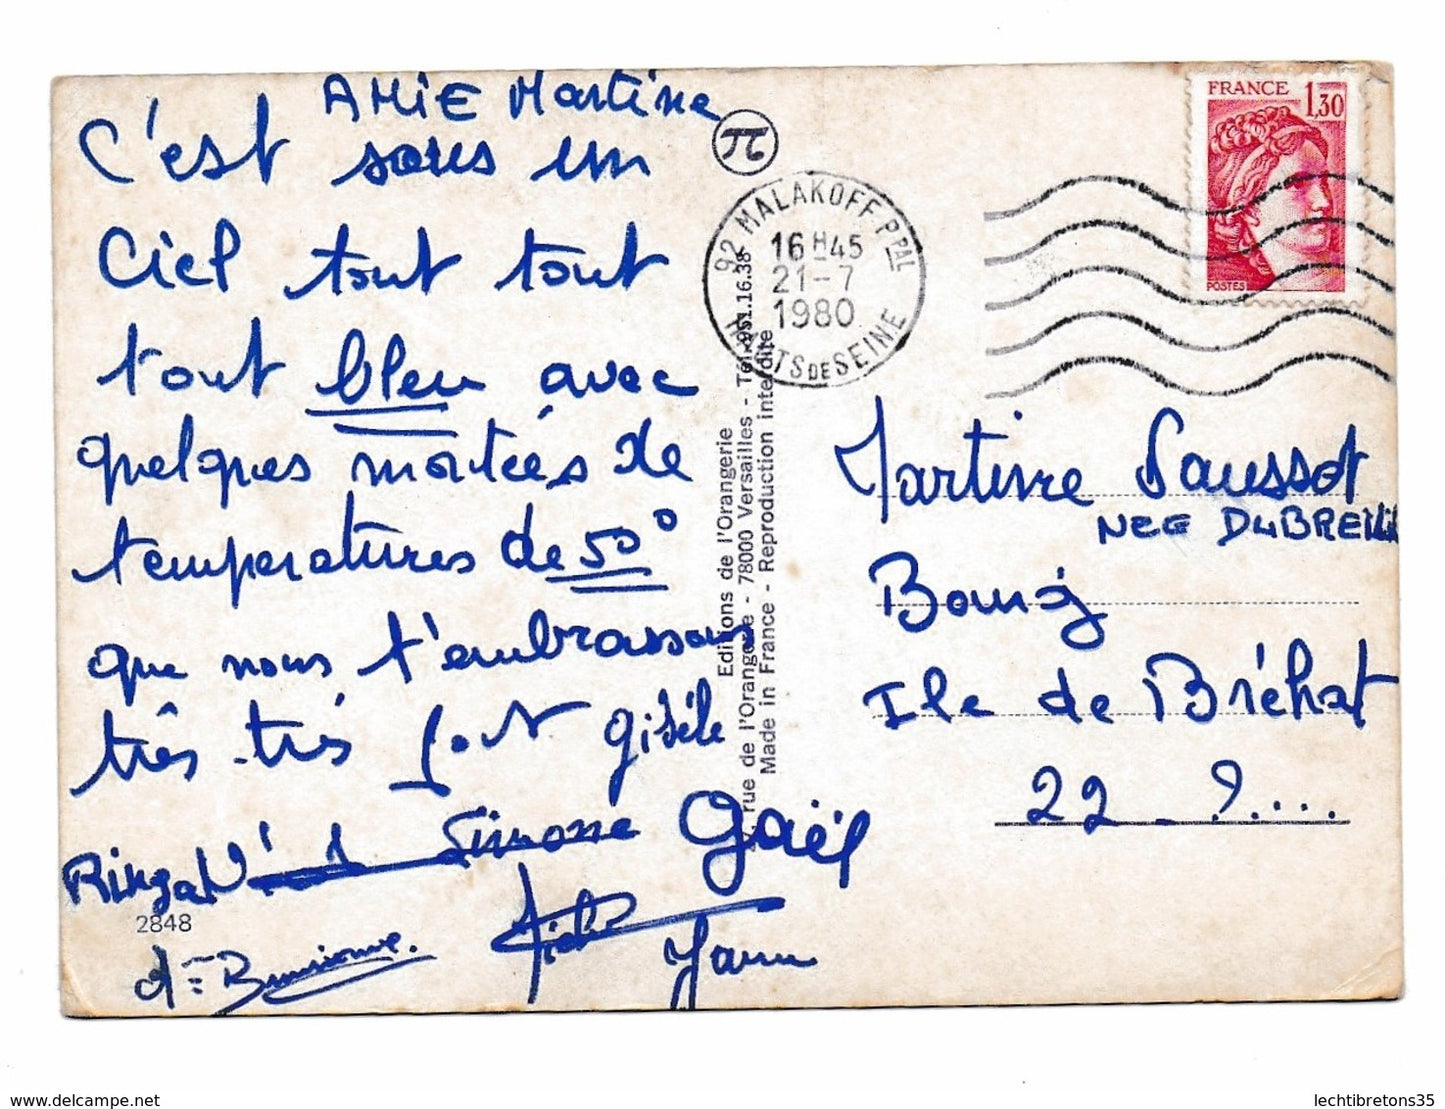 AMiE Martine
C'est sous un
Ciel tout tout
tout bleu avec
quelques montées de
températures de 50°
que nous t'embrassons
très très fort Gisèle
Simone Gaël
Yann
2848
π
92 MALAKOFF PPAL
16H45
21-7
1980
HAUTS DE SEINE
Editions de l'Orangerie
rue de l'Orangerie - 78000 Versailles - Tél. 951.16.38
Made in France - Reproduction interdite
FRANCE 1,30
POSTES
Martine Saussot
NEE DUBREUIL
Bourg
Ile de Bréhat
22 - ?....
lechtibretons35